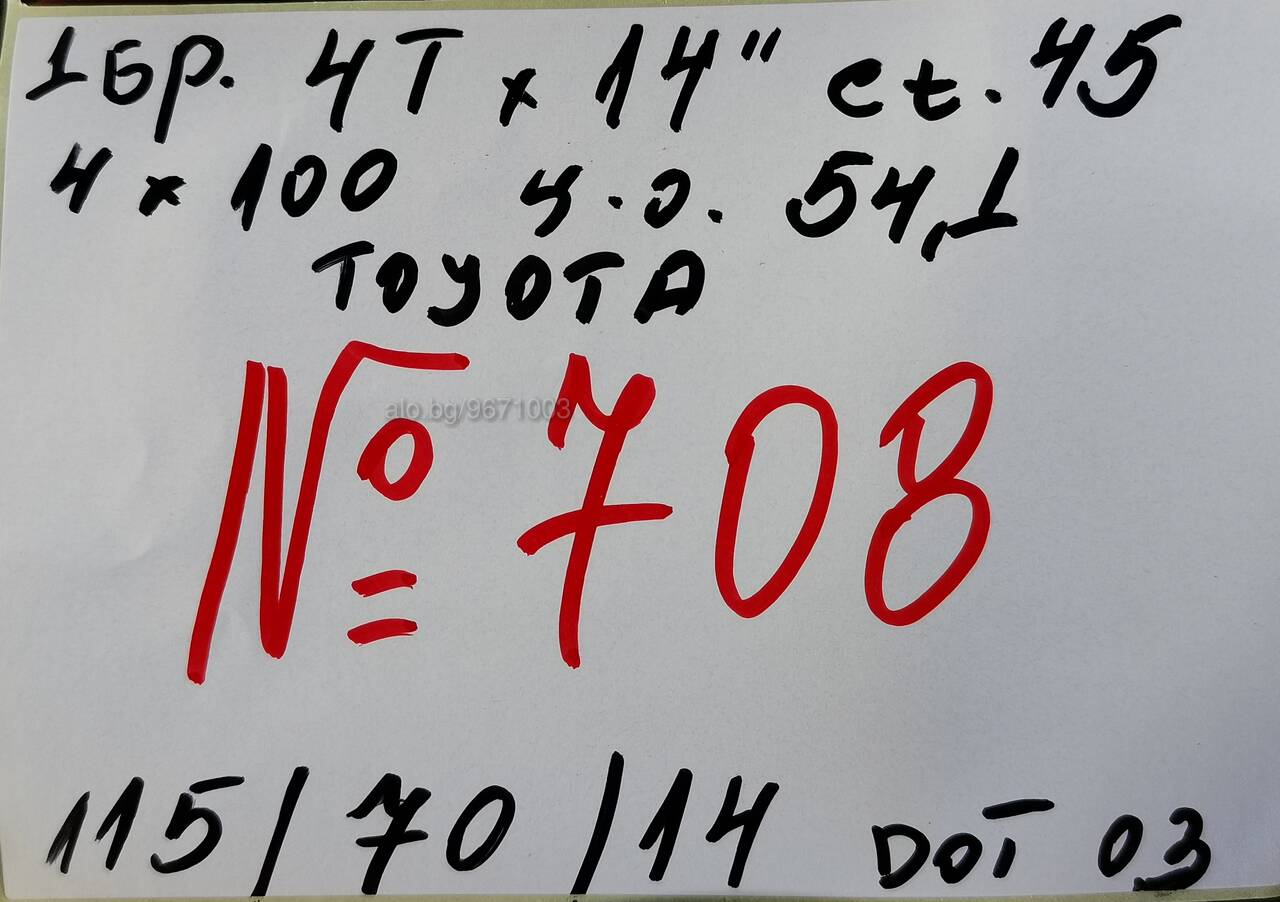 1бр. 4T x 14" et. 45
4 x 100 ц.о. 54,1
TOYOTA
alo.bg/9671003
№ 708
115/70/14 DOT 03